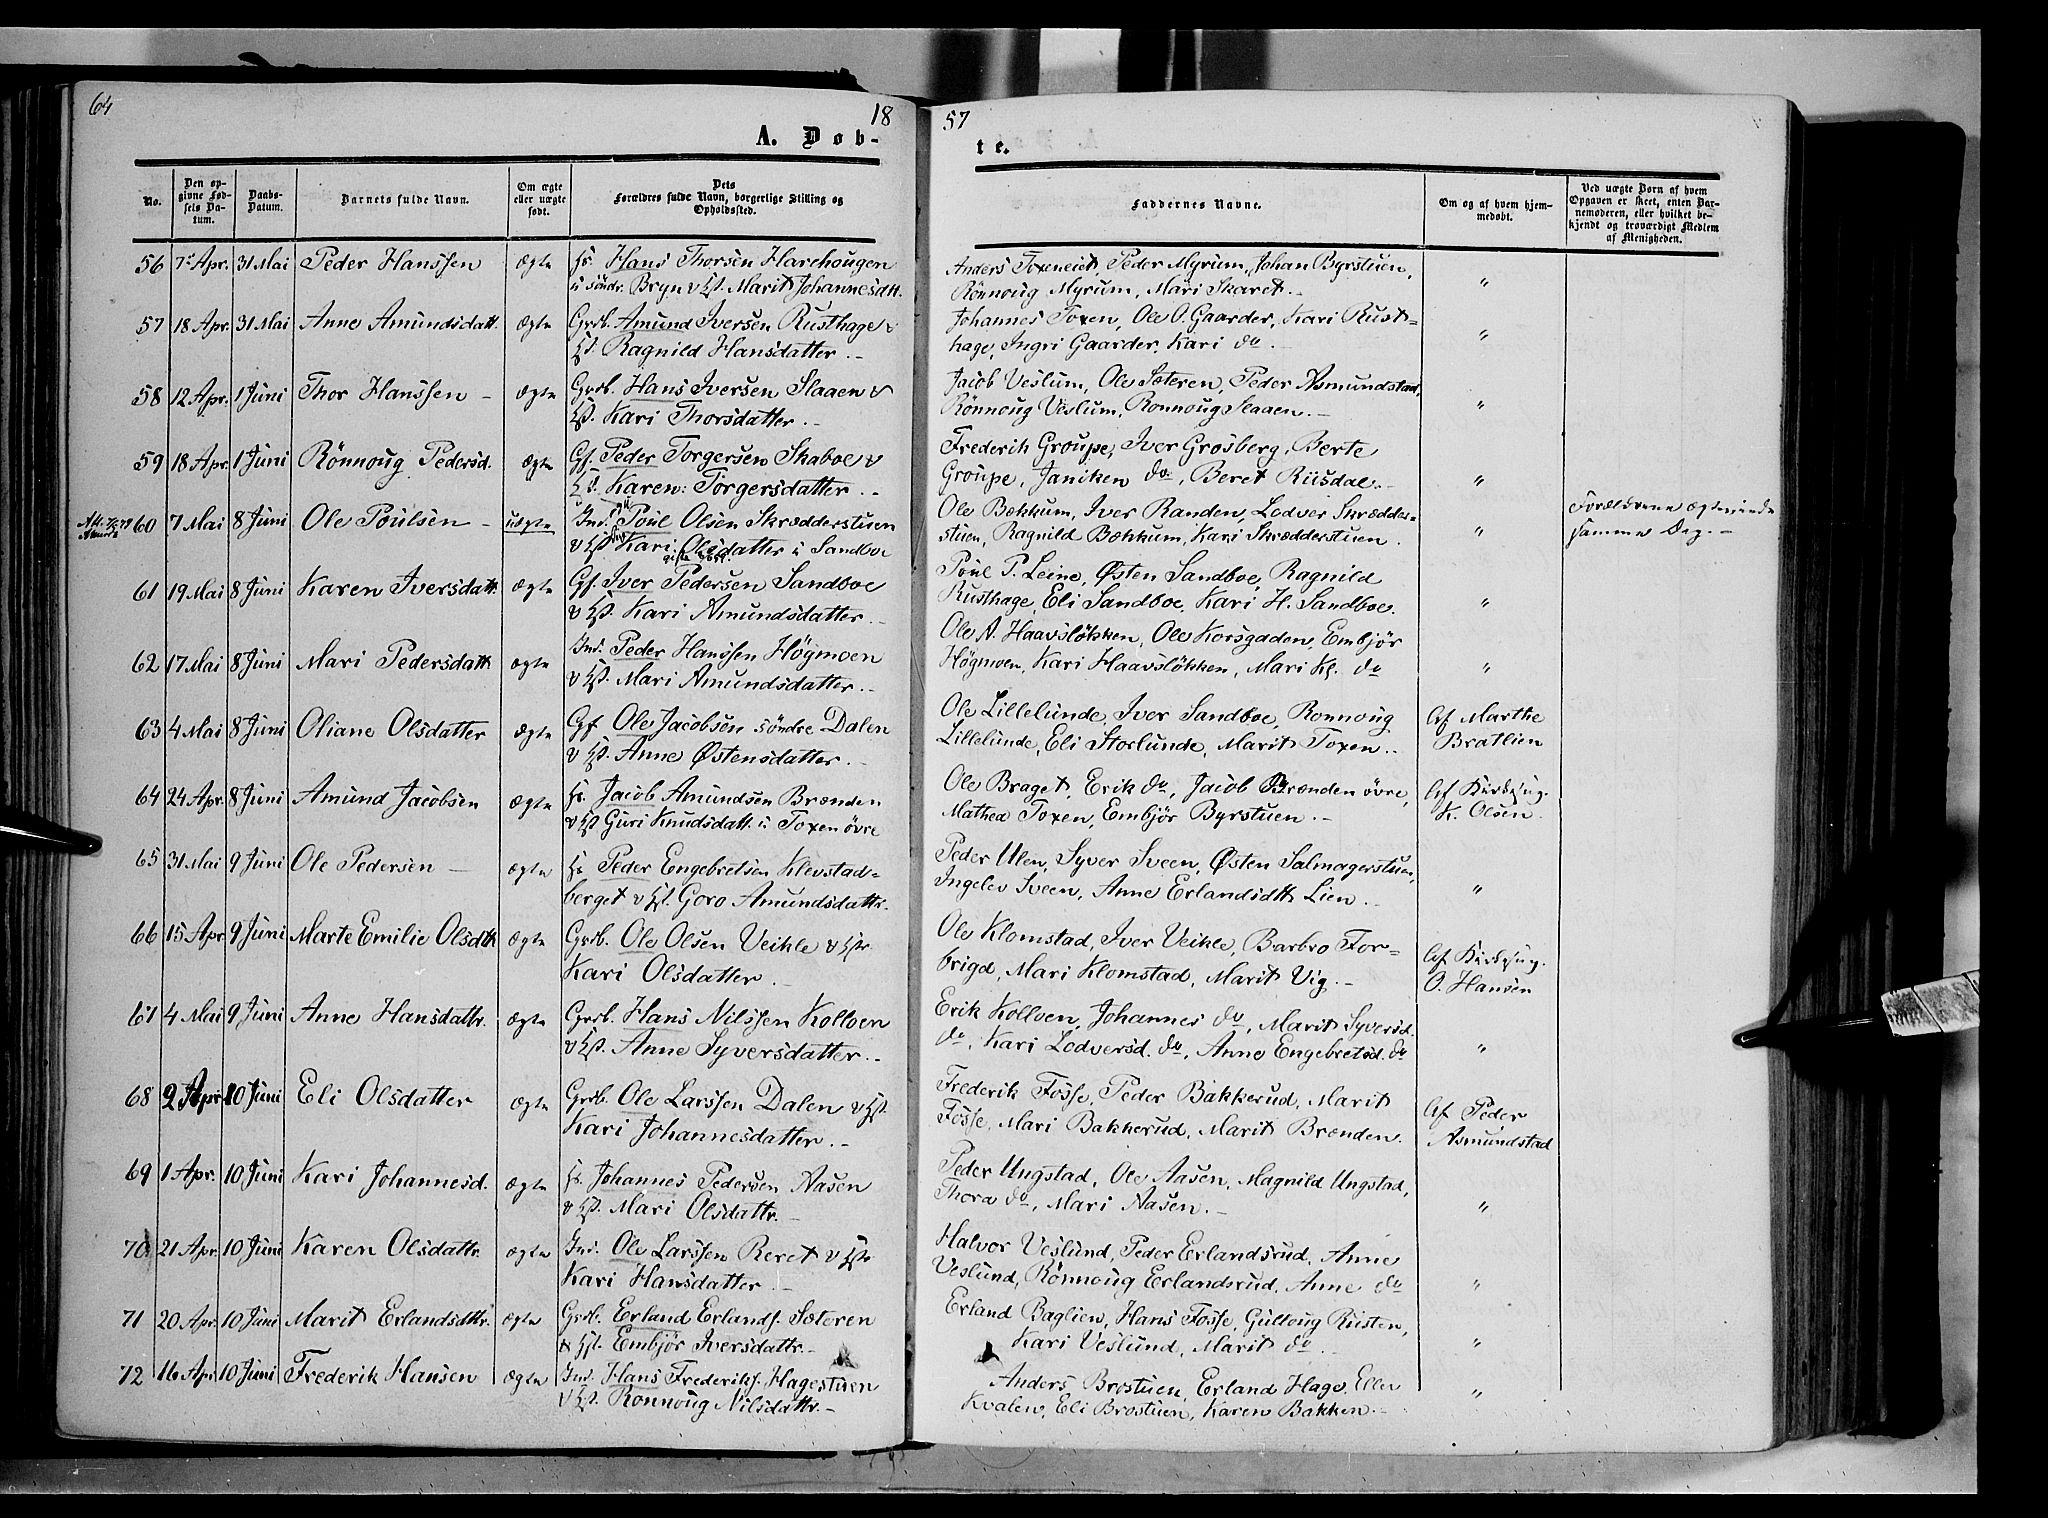 64
18
57
A. Døb-
te.
No.
Den opgivne Fødsels Datum.
Daabs-Datum.
Barnets fulde Navn.
Om ægte eller uægte født.
Dets Forældres fulde Navn, borgerlige Stilling og Opholdssted.
Faddernes Navne.
Om og af hvem hjemmedøbt.
Ved uægte Børn af hvem Opgaven er skeet, enten Barnemoderen, eller hvilket bekjendt og troværdigt Medlem af Menigheden.
56 7de Apr. 31 Mai Peder Hanssen ægte Hs. Hans Thorsen Harehougen
u söndr. Bryn & Hst. Marit Johannesdtt.
Anders Toxeneiet, Peder Myrum, Johan Byrstuen,
Rönnoug Myrum, Mari Skaret.- "
57 18 Apr. 31 Mai Anne Amundsdatt. ægte Grdb. Amund Iversen Rusthage &
Hst. Ragnild Hansdatter.-
Johannes Toxen, Ole O. Gaarder, Kari Rust-
hage, Ingri Gaarder, Kari do.- "
58 12 Apr. 1 Juni Thor Hanssen - ægte Grdb. Hans Iversen Slaaen &
Hst. Kari Thorsdatter.-
Jacob Veslum, Ole Sæteren, Peder Asmundstad,
Rönnoug Veslum, Ronnoug Slaaen.- "
59 18 Apr. 1 Juni Rönnoug Pedersd. ægte Gf. Peder Torgersen Skaboe &
Hst. Karen Torgersdatter.-
Frederik Groupe, Iver Grosberg, Berte
Groupe, Janiken do, Beret Riisdal.- "
60 7 Mai 8 Juni Ole Poulsen - uægte Ind. Poul Olsen Skrædderstuen
& Hst. Kari Olsdatter i Sandboe
Ole Bækkum, Iver Randen, Lodver Skrædder-
stuen, Ragnild Bækkum, Kari Skrædderstuen. "
Forældrene ægteviede
samme Dag.-
61 19 Mai 8 Juni Karen Iversdatt. ægte Gf. Iver Pedersen Sandboe
& Hst. Kari Amundsdatter.-
Poul P. Leine, Østen Sandboe, Ragnild
Rusthage, Eli Sandboe, Kari H. Sandboe. "
62 17 Mai 8 Juni Mari Pedersdatt. ægte Ind. Peder Hanssen Högmoen
& Hst. Mari Amundsdatter.-
Ole A. Haavsløkken, Ole Korsgaden, Embjør
Høgmoen, Kari Haavsløkken, Mari Kl. do "
63 4 Mai 8 Juni Oliane Olsdatter ægte Gf Ole Jacobsen söndre Dalen
& Hst. Anne Østensdatter.-
Ole Lillelunde, Iver Sandboe, Ronnoug
Lillelunde, Eli Storlunde, Marit Toxen.-
Af Marthe
Bratlien
64 24 Apr. 8 Juni Amund Jacobsen ægte Hs. Jacob Amundsen Brænden
& Hst Guri Knudsdatt. i Toxen övre
Ole Braget, Erik do, Jacob Brænden övre,
Mathea Toxen, Embjör Byrstuen.-
Af Kirkesng.
K. Olsen.
65 31 Mai 9 Juni Ole Pedersen - ægte Hs Peder Engebretsen Klevstad-
berget & Hst. Goro Amundsdatt.
Peder Ulen, Syver Sveen, Østen Salmagerstuen,
Ingelev Sveen, Anne Erlandsdtt Lien.- "
66 15 Apr 9 Juni Marte Emilie Olsdtt ægte Grdb. Ole Olsen Veikle & Hst.
Kari Olsdatter.-
Ole Klomstad, Iver Veikle, Barbro For-
brigd, Mari Klomstad, Marit Vig.-
Af Kirkesng.
O. Hansen
67 4 Mai 9 Juni Anne Hansdattr. ægte Grdb. Hans Nilssen Kolloen
& Hst. Anne Syversdatter.-
Erik Kolloen, Johannes do, Marit Syversd.
do, Kari Lodversd. do, Anne Engebretsd. do "
68 2 Apr 10 Juni Eli Olsdatter ægte Grdb. Ole Larssen Dalen & Hst.
Kari Johannesdatter.-
Frederik Fosse, Peder Bakkerud, Marit
Fosse, Mari Bakkerud, Marit Brænden.
Af Peder
Asmundstad
69 1 Apr. 10 Juni Kari Johannesd. ægte Hs. Johannes Pedersen Aasen
& Hst. Mari Olsdattr.-
Peder Ungstad, Ole Aasen, Magnild Ungstad,
Thora do, Mari Aasen.- "
70 21 Apr. 10 Juni Karen Olsdattr. ægte Ind. Ole Larssen Reret & Hst
Kari Hansdatter.-
Halvor Veslund, Peder Erlandsrud, Anne
Veslund, Rönnoug Erlandsrud, Anne do "
71 20 Apr. 10 Juni Marit Erlandsdttr. ægte Grdb. Erland Erlands. Sæteren
& Hst. Embjör Iversdattr.-
Erland Baglien, Hans Fosse, Gulloug Riisten,
Kari Veslund, Marit do. "
72 16 Apr 10 Juni Frederik Hansen ægte Ind. Hans Frederiks. Hagestuen
& Hst. Ronnoug Nilsdattr.-
Anders Brostuen, Erland Hage, Ellen
Kvalen, Eli Brostuen, Karen Bakken.- "